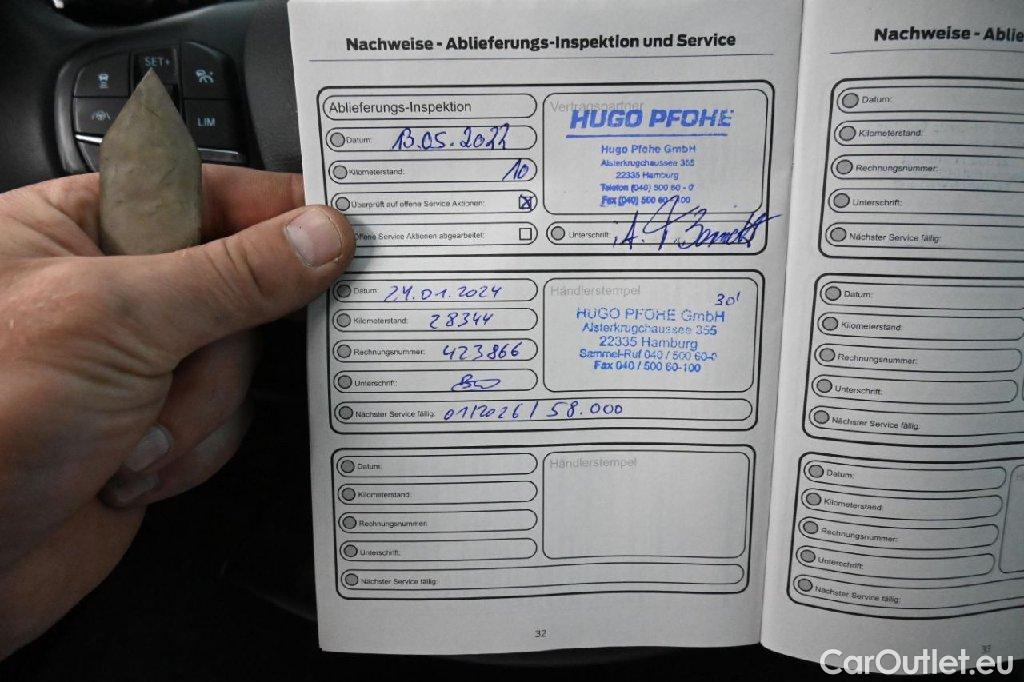 SET+
LIM
Nachweise - Ablieferungs-Inspektion und Service
Ablieferungs-Inspektion
Datum: 13.05.2022
Kilometerstand: 10
Überprüft auf offene Service Aktionen:
Offene Service Aktionen abgearbeitet:
Vertragspartner
HUGO PFOHE
Hugo Pfohe GmbH
Alsterkrugchaussee 355
22335 Hamburg
Telefon (040) 500 60 - 0
Fax (040) 500 60 - 100
Unterschrift:
Datum: 24.01.2024
Kilometerstand: 28344
Rechnungsnummer: 423866
Unterschrift:
Nächster Service fällig: 01/2026 / 58.000
Händlerstempel
30'
HUGO PFOHE GmbH
Alsterkrugchaussee 355
22335 Hamburg
Sammel-Ruf 040 / 500 60-0
Fax 040 / 500 60-100
Datum:
Kilometerstand:
Rechnungsnummer:
Unterschrift:
Nächster Service fällig:
Händlerstempel
32
Nachweise - Ablie
Datum:
Kilometerstand:
Rechnungsnummer:
Unterschrift:
Nächster Service fällig:
Datum:
Kilometerstand:
Rechnungsnummer:
Unterschrift:
Nächster Service fällig:
Datum:
Kilometerstand:
Rechnungsnummer:
Unterschrift:
Nächster Service fällig:
33
CarOutlet.eu